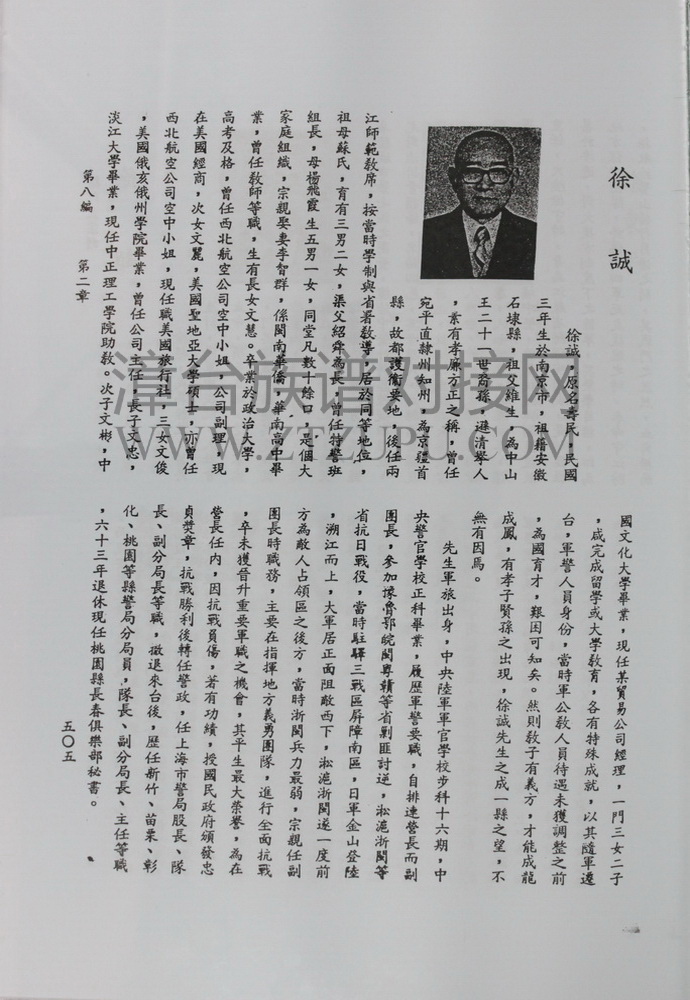 徐誠
徐誠，原名壽民，民國
三年生於南京市，祖籍安徽
石埭縣，祖父維生，為中山
王二十一世裔孫，遜清舉人
，素有孝廉方正之稱，曾任
宛平直隸州知州，為京疆首
縣，故都護衛要地，後任兩
江師範教席，按當時學制與省署教導，居於同等地位，
祖母蘇氏，育有三男二女，渠父紹舜為長，曾任特警班
組長，母楊飛霞生五男一女，同堂凡數十餘口，是個大
家庭組織，宗親娶妻李智群，係閩南華僑，華南高中畢
業，曾任教師等職，生有長女文慧。卒業於政治大學，
高考及格，曾任西北航空公司空中小姐，公司副理，現
在美國經商，次女文麗，美國聖地亞大學碩士，亦曾任
西北航空公司空中小姐，現任職美國旅行社，三女文俊
，美國俄亥俄州學院畢業，曾任公司主任，長子文忠，
淡江大學畢業，現任中正理工學院助教。次子文彬，中
國文化大學畢業，現任某貿易公司經理，一門三女二子
，咸完成留學或大學教育，各有特殊成就，以其隨軍遷
台，軍警人員身份，當時軍公教人員待遇未獲調整之前
，為國育才，艱困可知矣。然則教子有義方，才能成龍
成鳳，有孝子賢孫之出現，徐誠先生之成一縣之望，不
無有因焉。
先生軍旅出身，中央陸軍軍官學校步科十六期，中
央警官學校正科畢業，履歷軍警要職，自排連營長而副
團長，參加豫魯鄂皖閩粵贛等省剿匪討逆，淞滬浙閩等
省抗日戰役，當時駐驛三戰區屏障南區，日軍金山登陸
，溯江而上，大軍居正面阻敵西下，淞滬浙閩遂一度前
方為敵人占領區之後方，當時浙閩兵力最弱，宗親任副
團長時職務，主要在指揮地方義勇團隊，進行全面抗戰
，卒未獲晉升重要軍職之機會，其平生最大榮譽，為在
營長任內，因抗戰負傷，著有功績，授國民政府頒發忠
貞獎章，抗戰勝利後轉任警政，任上海市警局股長、隊
長、副分局長等職，撤退來台後，歷任新竹、苗栗、彰
化、桃園等縣警局分局員，隊長、副分局長、主任等職
，六十三年退休現任桃園縣長春俱樂部秘書。
第八編 第二章
五〇五
漳台族谱对接网
WWW.ZTZUPU.COM